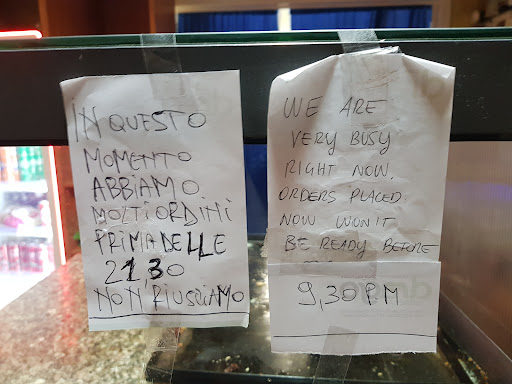 IN QUESTO
MOMENTO
ABBIAMO
MOLTI ORDINI
PRIMA DELLE
2130
NON RIUSCIAMO
WE ARE
VERY BUSY
RIGHT NOW.
ORDERS PLACED
NOW WON'T
BE READY BEFORE
9,30 PM